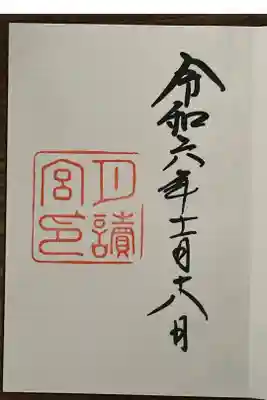 令和六年十一月十八日
月讀
宮印